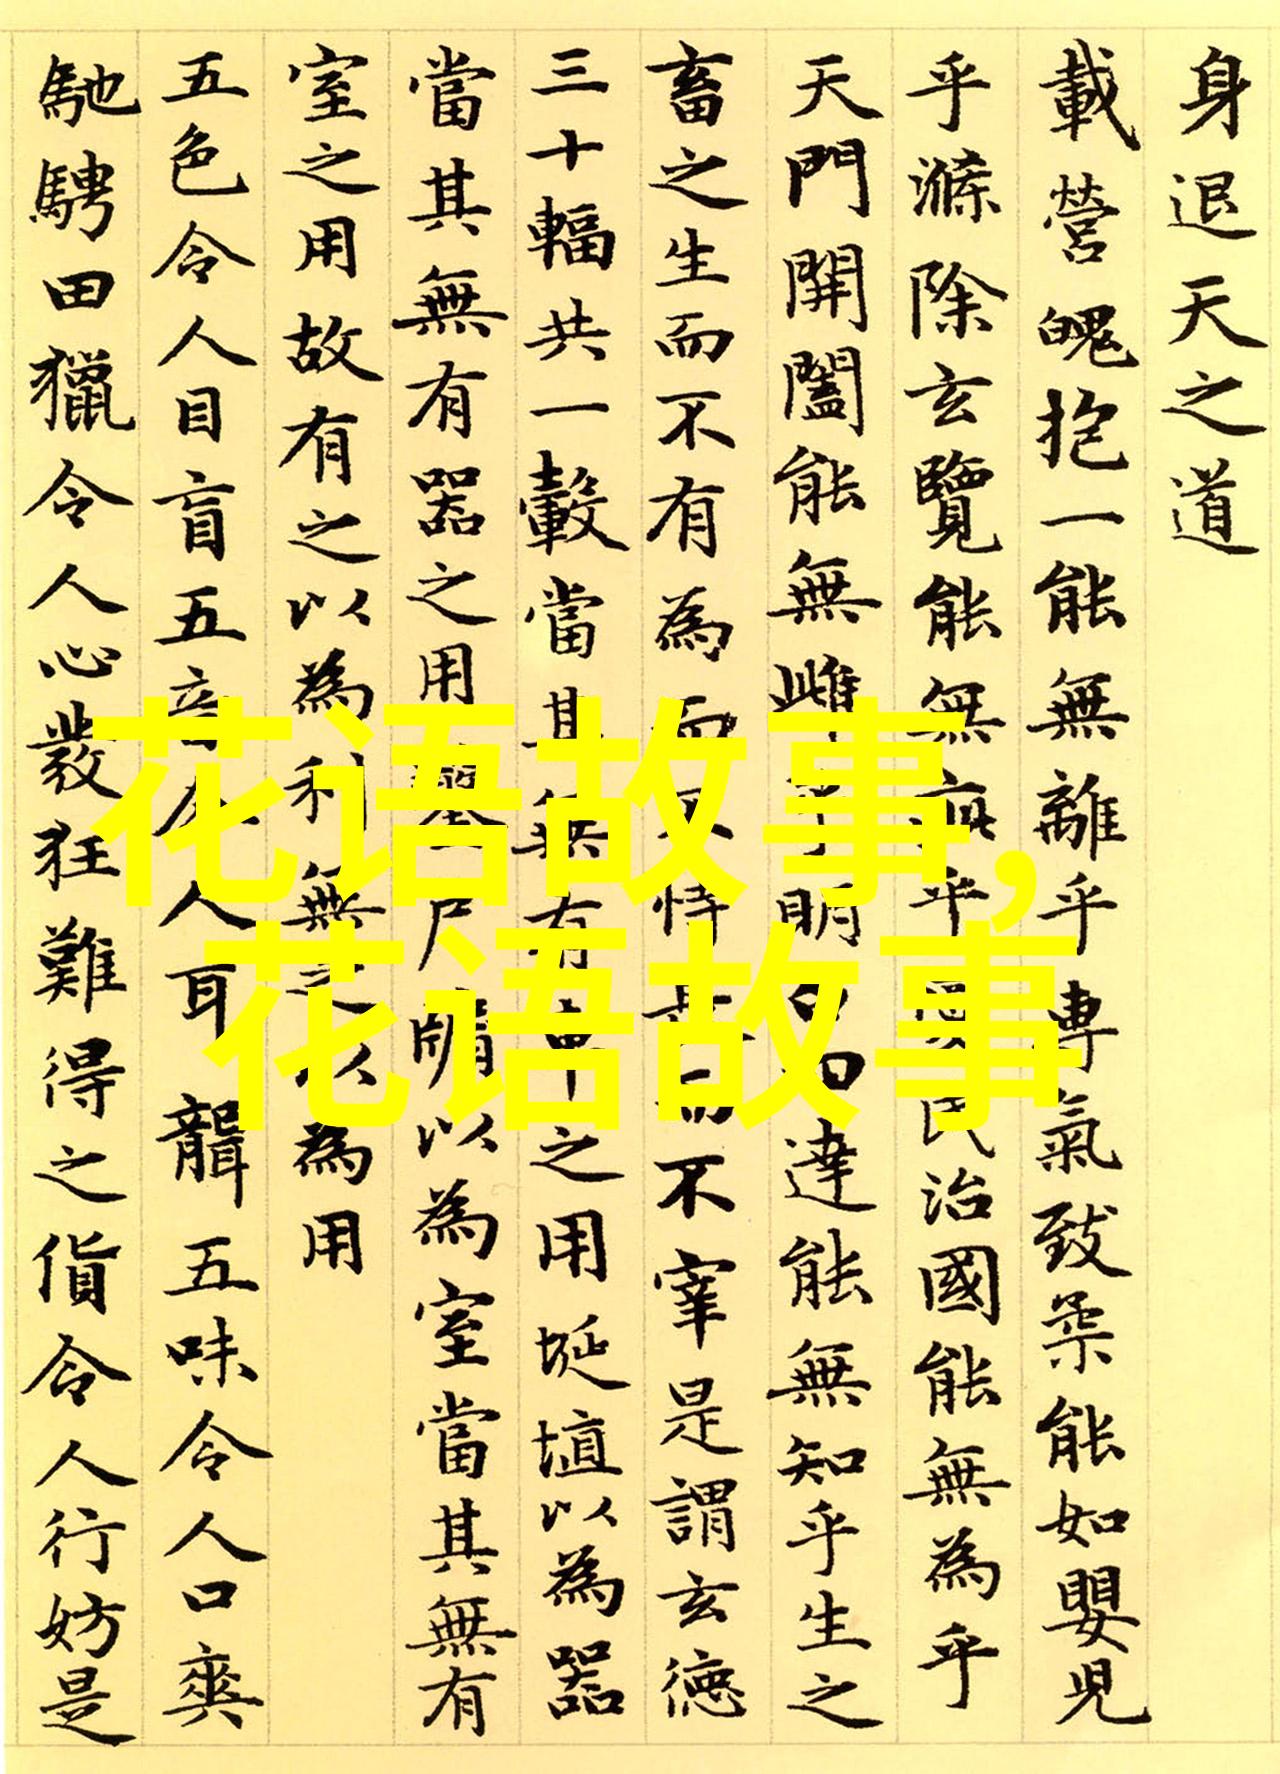 身退天之道
載營魄抱一能無離乎專氣致柔能如嬰兒
乎滌除玄覽能無疵乎愛民治國能無為乎
天門開闔能無雌乎明白四達能無知乎生之
畜之生而不有為而不恃長而不宰是謂玄德
三十輻共一轂當其無有車之用埏埴以為器
當其無有器之用鑿戶牖以為室當其無有
室之用故有之以為利無之以為用
五色令人目盲五音令人耳聾五味令人口爽
馳騁田獵令人心發狂難得之貨令人行妨是
花语故事,
花语故事